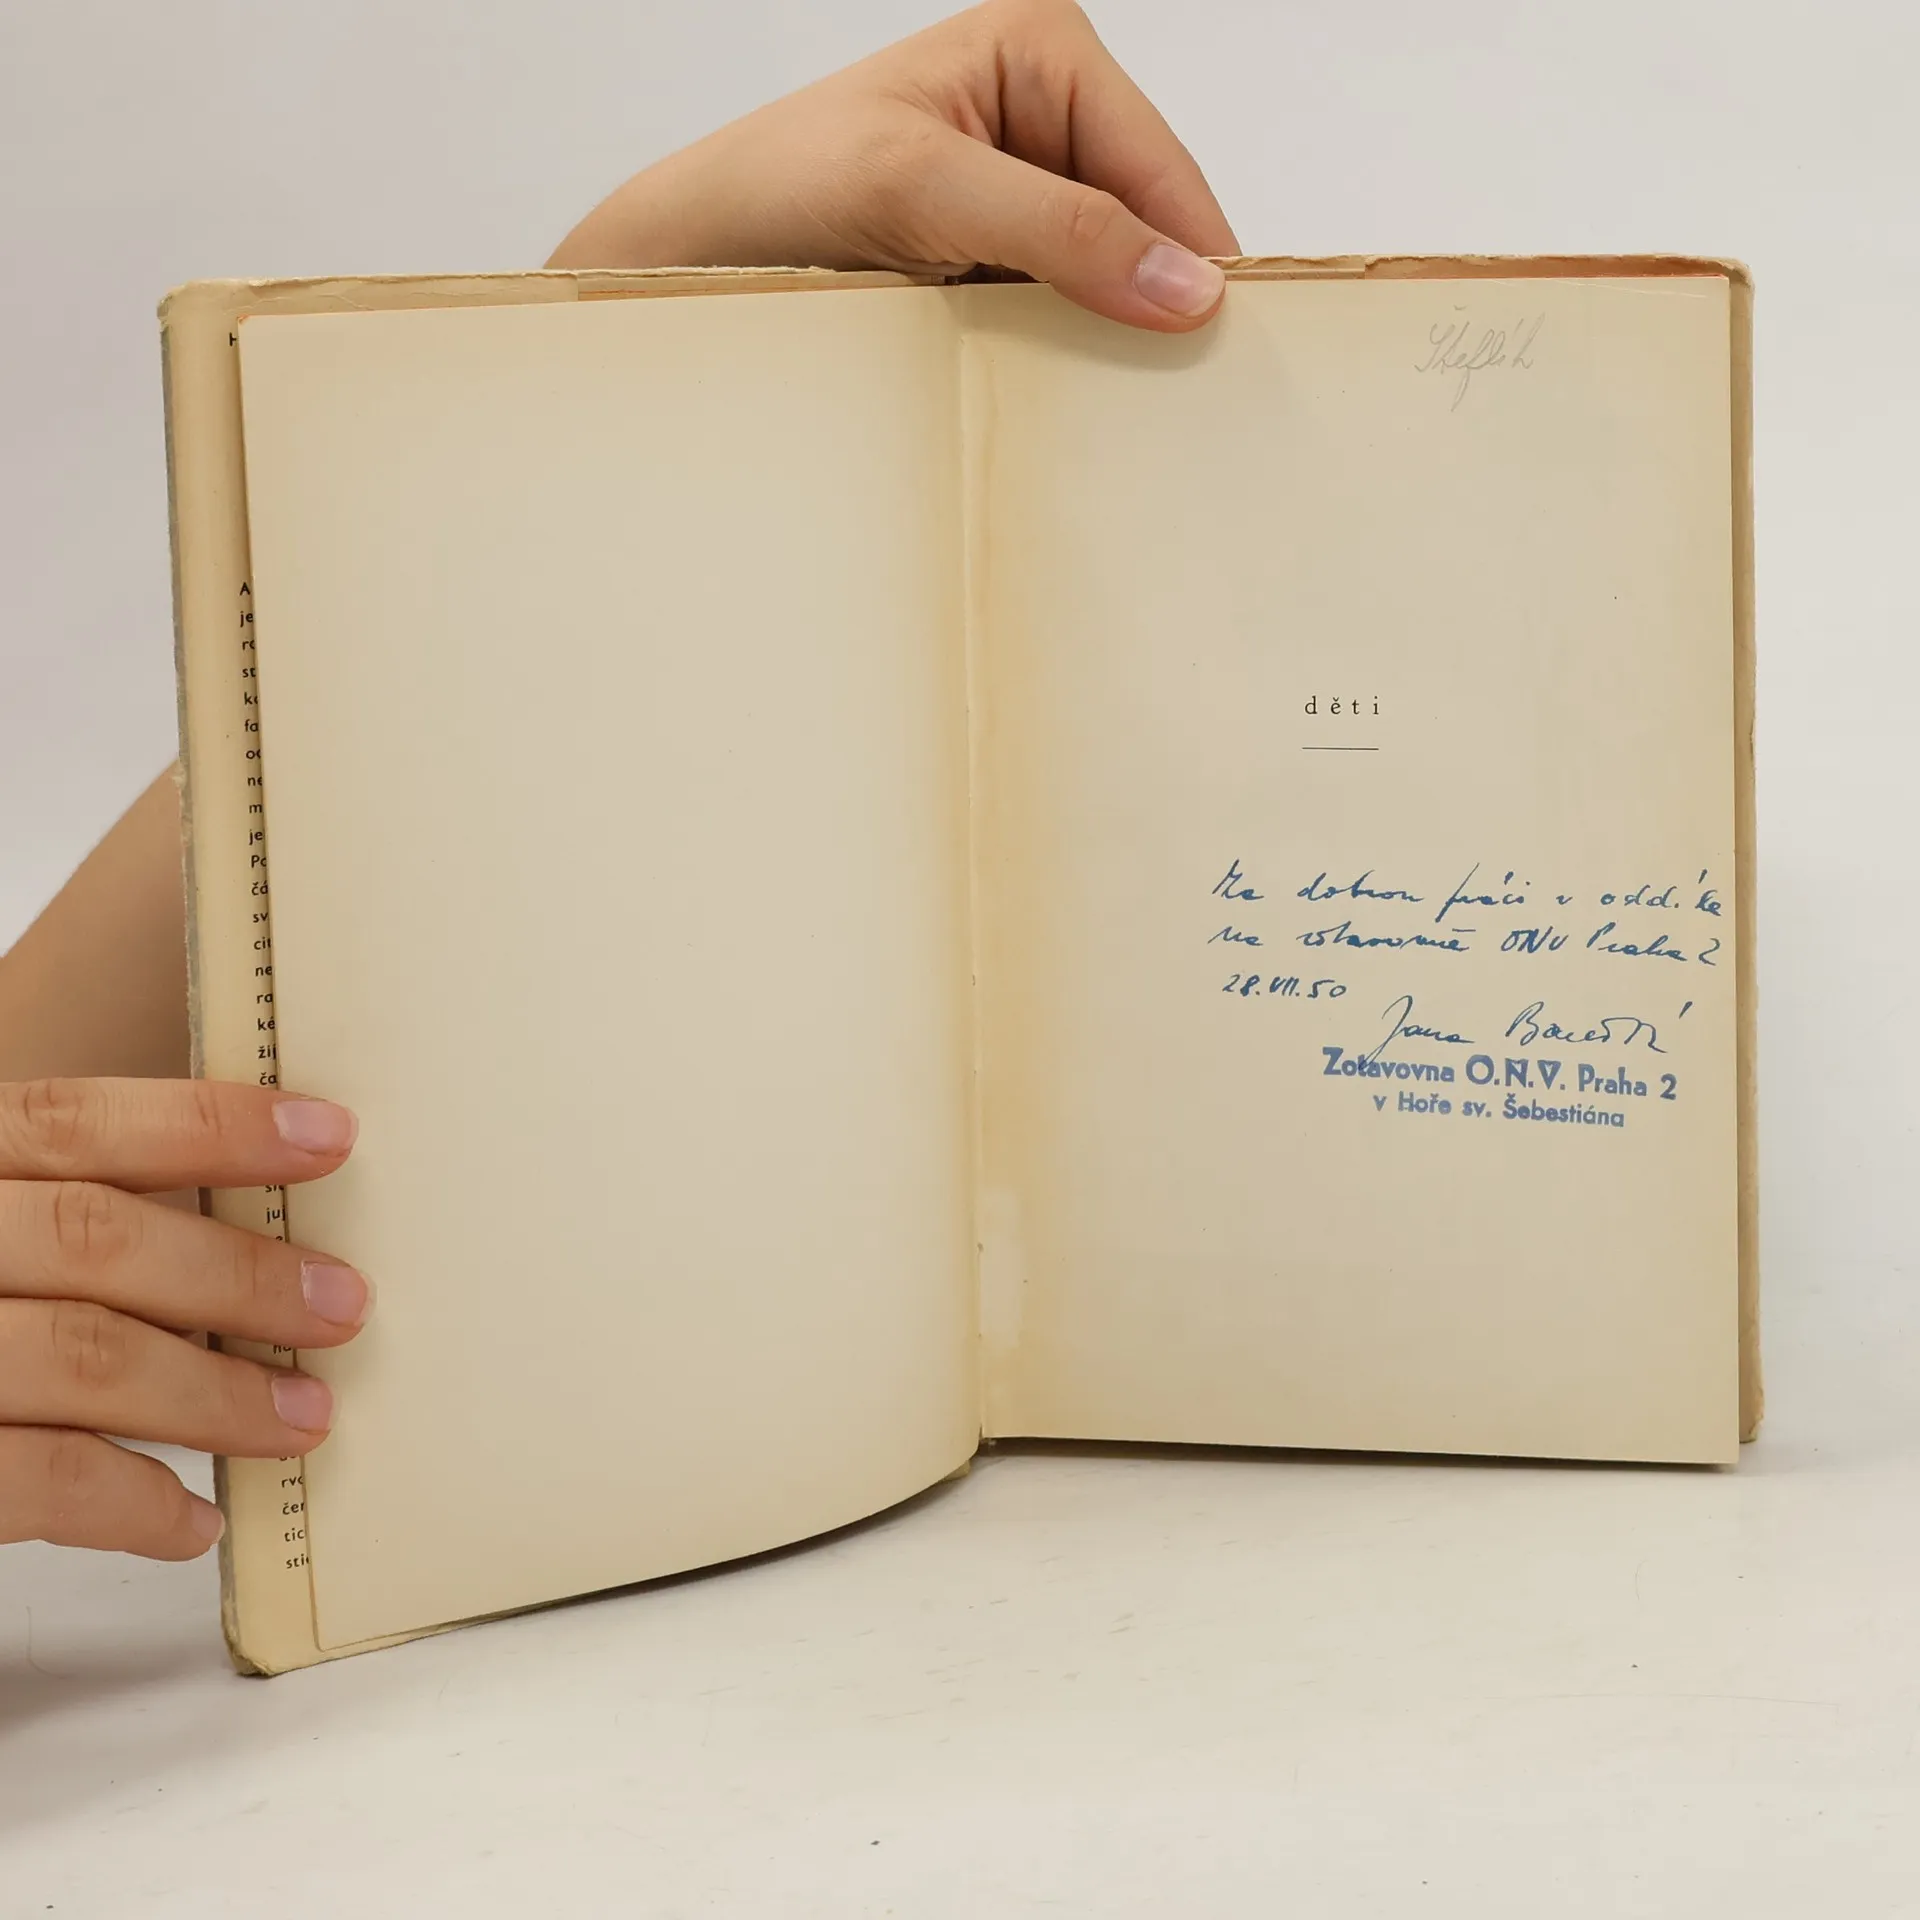 H
A
je
ro
st
ko
fa
oc
ne
m
je
Po
čá
sv
cit
ne
ra
ké
žij
ča
juj
rvo
čer
tic
sti
děti
Za dobrou práci v oddíle
na zotavovně ONV Praha 2
28.VII.50
Jana
Zotavovna O.N.V. Praha 2
v Hoře sv. Šebestiána